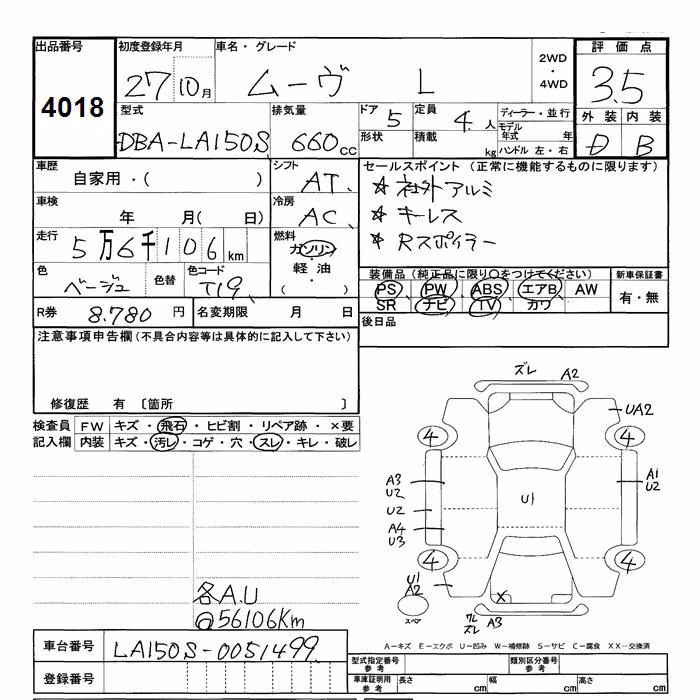 出品番号 初度登録年月 車名・グレード 評価点
4018 27 10月 ムーヴ L 2WD・4WD 3.5
外装 内装
D B
型式 排気量 ドア 5 定員 4人 ディーラー・並行
DBA-LA150S 660cc 形状 積載 kg モデル年式 年
ハンドル 左・右
車歴 シフト セールスポイント (正常に機能するものに限ります)
自家用・( ) AT
☆社外アルミ
車検 年 月( 日) 冷房 AC
☆キーレス
走行 5万6千106km 燃料 ガソリン・軽油・( )
☆Rスポイラー
色 ベージュ 色替 色コード T19
装備品 (純正品に限り○をつけてください) 新車保証書
PS PW ABS エアB AW 有・無
SR ナビ TV カワ
R券 8.780円 名変期限 月 日 後日品
注意事項申告欄(不具合内容等は具体的に記入して下さい)
修復歴 有 〔箇所 〕
検査員 FW キズ・飛石・ヒビ割・リペア跡・×要
記入欄 内装 キズ・汚レ・コゲ・穴・スレ・キレ・破レ
ズレ A2
UA2
4 4
A3 A1
U2 U2
U1
U2
A4
U3
4 4
U1
A2
X
スペア
ワレ
ズレ A3
各A.U
@56106Km
A-キズ E-エクボ U-凹み W-補修跡 S-サビ C-腐食 XX-交換済
車台番号 LA150S-0051499
型式指定番号 参考 類別区分番号 参考
登録番号
車庫証明用 参考 長さ cm 幅 cm 高さ cm